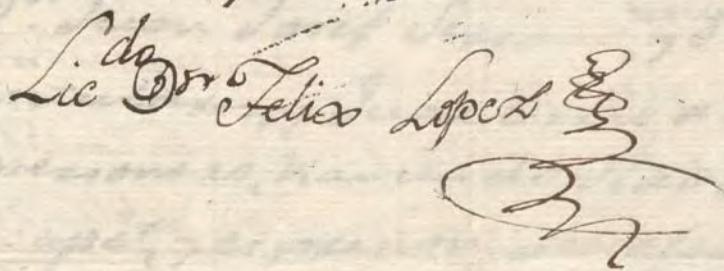 Lic.do Dn Felix Lopez